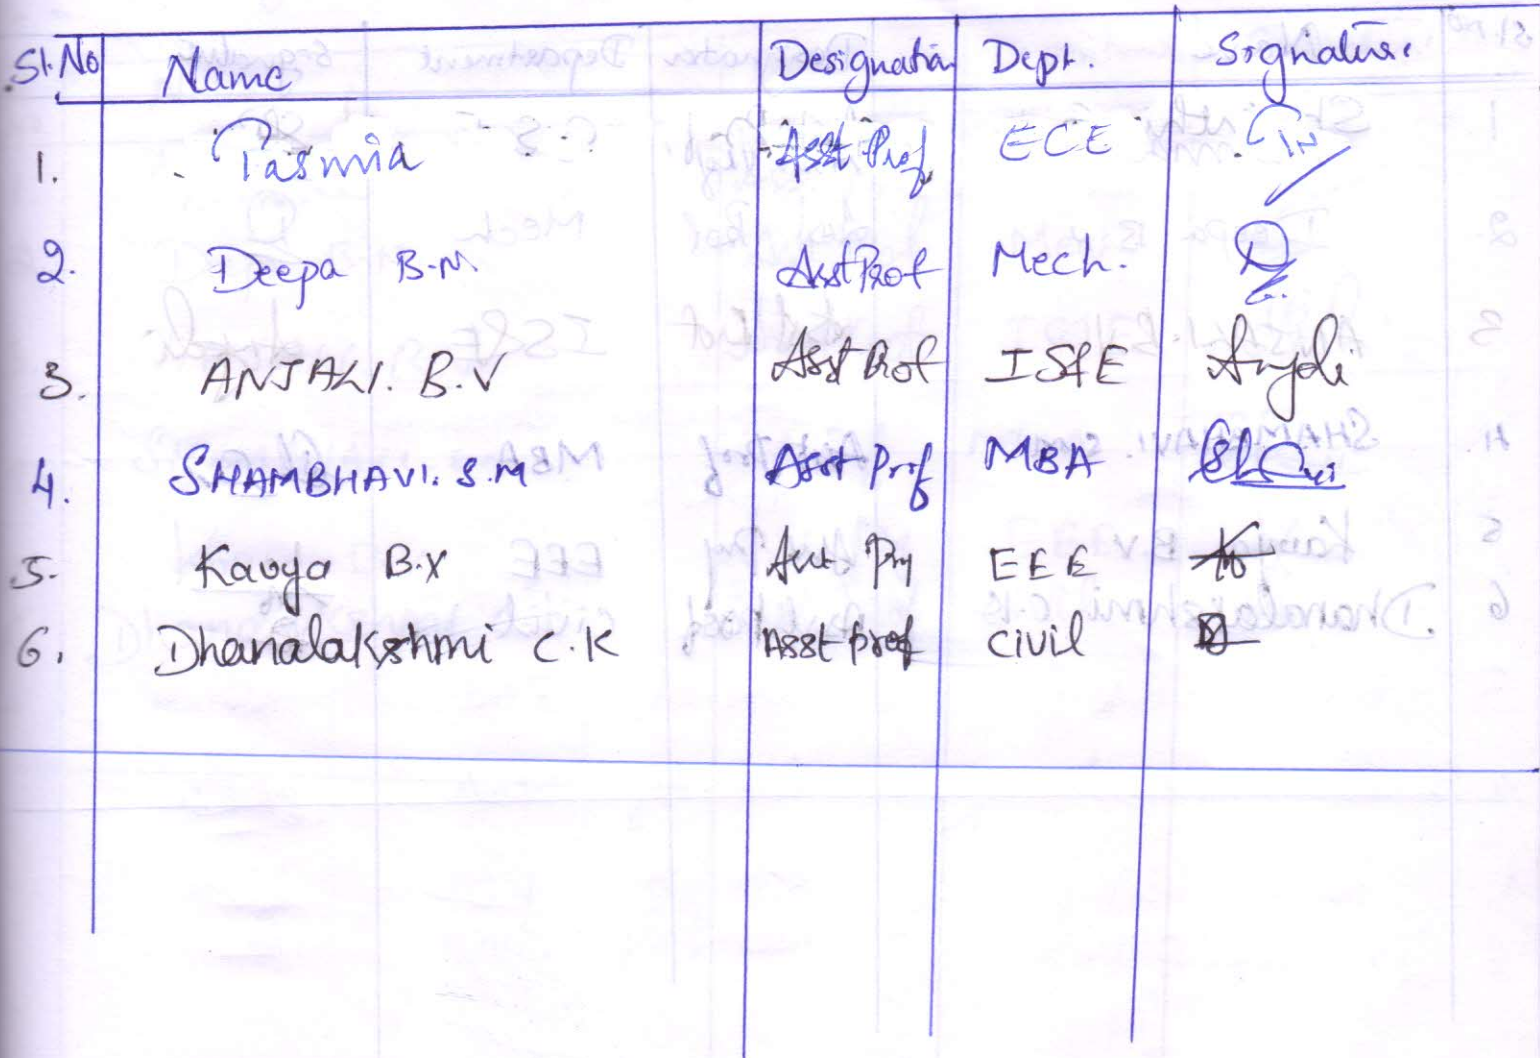 Sl.No Name Designation Dept. Signature
1. Tasmia Asst Prof ECE
2. Deepa B.M. Asst Prof Mech.
3. ANJALI. B.V Asst Prof IS&E Anjali
4. SHAMBHAVI. S.M Asst Prof MBA
5. Kavya B.Y Asst Prf EEE
6. Dhanalakshmi C.K Asst prof civil